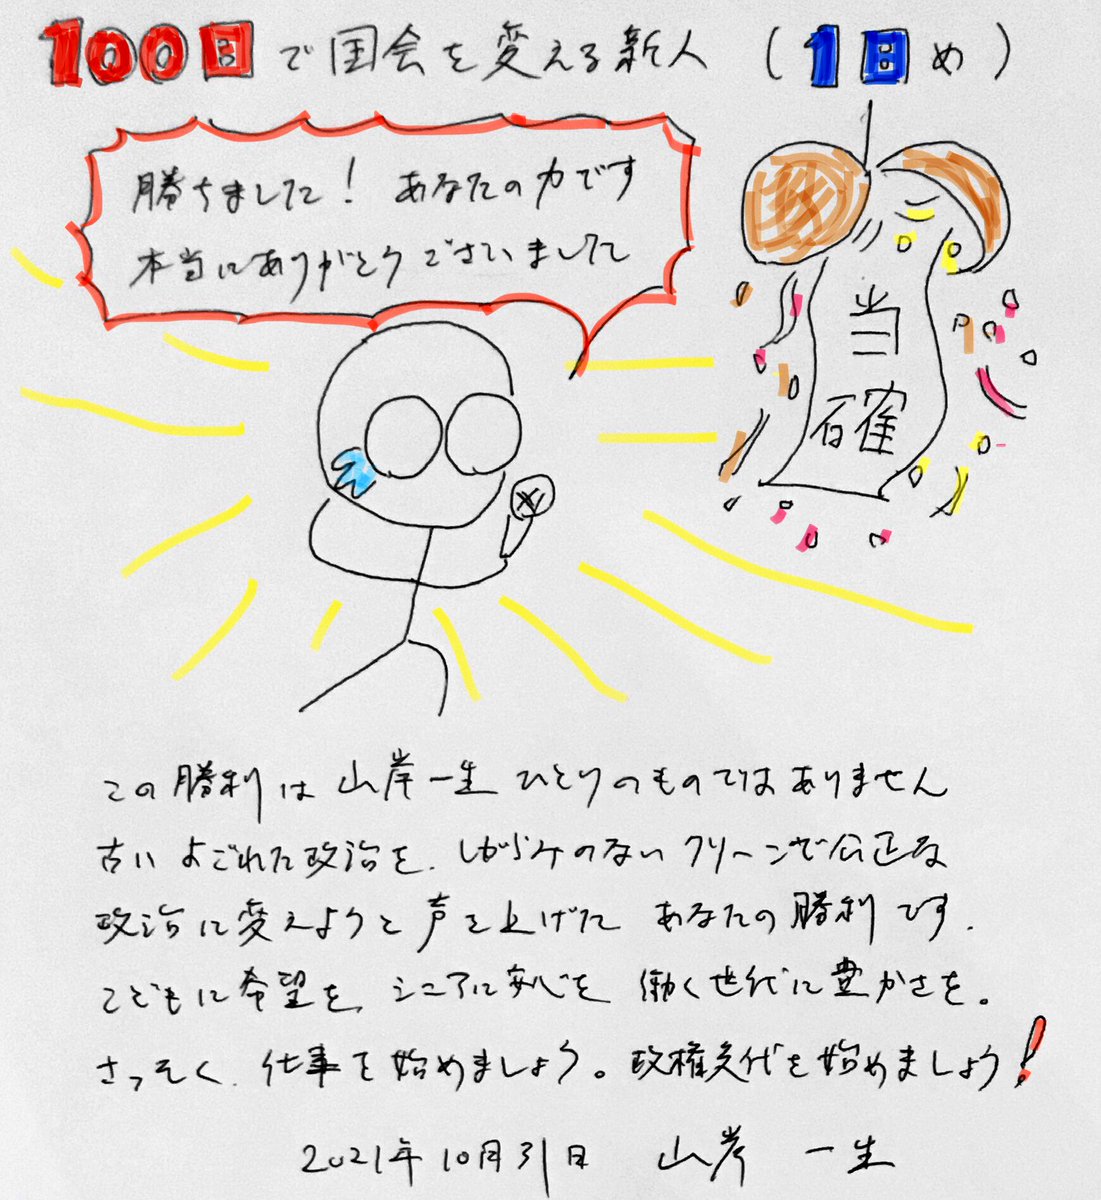 100日で国会を変える新人（1日め）
勝ちました！ あなたの力です
本当にありがとうございました
当
確
この勝利は 山岸一生 ひとりのものではありません
古い よごれた政治を、しがらみのない クリーンで公正な
政治に変えようと声を上げた あなたの勝利です。
こどもに希望を、シニアに安心を 働く世代に豊かさを。
さっそく、仕事を始めましょう。政権交代を始めましょう！
2021年10月31日 山岸 一生